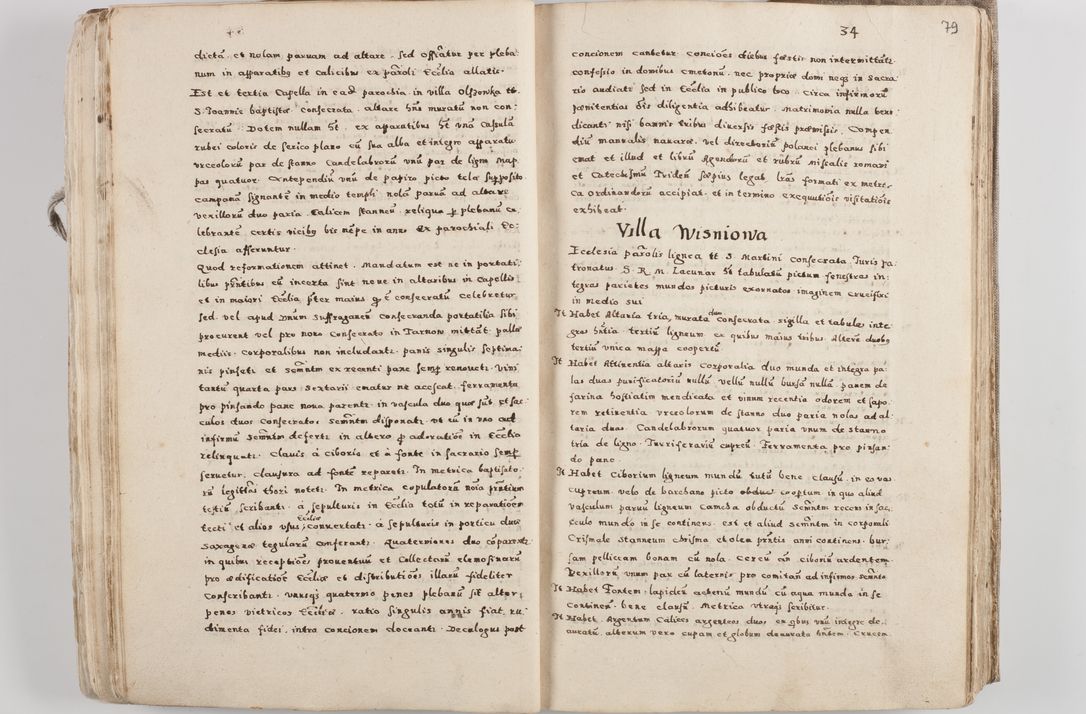 dictã. et nolam paruam ad altare. sed officiatur per pleba
num in apparatibus et calicibus ex paroli Ecclia allatis.
Est et tertia Capella in eadẽ parochia in villa Olszowka tt.
S. Joannis baptistæ consecrata. altare hũs muratũ non con
secratũ. Dotem nullam ht. ex apparatibus ht unã Casulã
rubei coloris de serico plano cũ sua alba et integro apparatu
urceolorũ par de stanno Candelabrorũ unũ par de ligno Map
pas quatuor. Antependiũ unũ de papiro picto tela supposito
campanã signantẽ in medio templi nolã paruã ad altare
vexillorũ duo paria. Calicem stanneũ. reliqua p plebanũ ce
lebrantẽ certis vicibus bis nẽpe in anno ex parochiali Ec
clesia afferuntur.
Quod reformationem attinet. Mandatum est ne in portati
libus pñtibus cũ incerta sint neue in altaribus in Capellis
et in maiori Ecclia pter maius q ẽ consecratũ celebretur
sed vel apud Suffraganeũ consecranda portatilia sibi
procurent vel pro nouo consecrato in Tarnow mittãt. pallæ
mediis corporalibus non includant. panis singulis septima
nis pinseti et semẽtm ex recenti pane semp renouetr. Vini
tantũ quarta pars sextarii ematur ne acescat. ferramenta
pro pinsando pane noua parentr. in vascula duo quæ sũt et sac
culos duos consecratos semẽtm disponatr. ut cũ in uno ad
infirmũ semẽtm defertr in altero p adoratiõe in Ecclia
relinquatr. Clauis a ciborio et a fonte in sacrario semp
seruetur. Clausura ad fontẽ reparetr. In metrica baptisato
rũ legittimi thori notetr. In metrica copulatorũ noĩa prñtium
testiũ scribantr. a sepulturis in Ecclia totũ in reparatiões
tecti et alios usus Ecclie conuertatr. a sepulturis in porticu duæ
saxagenæ tegularũ conferantr. Quaterniones duo cõparentr
in quibus receptiões prouentuũ et Collectarũ elemosinarũ
pro ædificatiõe Eccliæ et distributiões illarũ fideliter
conscribantr. unusqs quaternio penes plebanũ sit alter
penes vietricos Eccliæ. ratio singulis annis fiat. ru
dimenta fidei intra concionem doceantr. Decalogus post
34
79
concionem cantetur concioẽs diebus fæstis non intermittãtr.
confessio in domibus cmetonũ nec propriæ domi neqs in sacra
rio audiatr sed in Ecclia in publico loco. Circa infirmorũ
pænitentias dis diligentia adhibeatur. Matrimonia nulla bene
dicantr nisi bannis tribus diuersis fæstis præmissis. Compen
diũ manualis nauaræ. vel directoriũ polanci plebanus sibi
emat et illud et librũ Agendorũ et rubrũ missalis romani
et Catechismũ Tridẽn sæpius legat. lras formati ex metri
ca ordinandorũ accipiat. et in termino exequutiõis visitatiõis
exhibeat.
Villa Wisniowa
Ecclesia parolis lignea tt S Martini consecrata. Juris pa
tronatus S. R. M. Lacunar ht tabulatũ pictum fenestras in
tegras parietes mundos picturis exornatos imaginem crucifixi
in medio sui
It Habet Altaria tria, murata duo consecrata sigilla et tabulas inte
gras hñtia. tertiũ ligneum ex quibus maius tribus. Alterũ duobus
tertiũ unica mappa coopertũ.
It Habet Attinentia altaris Corporalia duo munda et integra pa
las duas purificatoriũ nullũ. vellũ nullũ bursã nullã. panem de
farina hostiatim mendicata et vinum recentia odorem et sapo
rem retinentia urceolorum de stanno duo paria nolas ad al
taria duas. Candelabrorum quatuor paria unum de stanno
tria de ligno. Turriferariũ cupreũ. Ferramenta pro pinsan
do pane
It Habet Ciborium ligneum mundũ tutũ bene clausũ. in eo vas
cupreum velo de barchano picto obduc cooptum in quo aliud
vasculum paruũ ligneum Camcha obductũ semẽtm recens in sac
culo mundo in se continens. est et aliud semẽtm in corporali
Crismale stanneum chrisma et olea prñtis anni continens. bur
sam pelliceam bonam cũ nola. Cereũ añ ciboriũ ardentem
Vexillorũ unum par cũ laternis pro comitãn ad infirmos scemto
It Habet Fontem lapideũ aeneũ mundũ cũ aqua munda in se
continen. bene clausũ. Metrica utraqs scribitur.
It Habet. Argentum Calices argenteos duos ex qbus unũ integre de
auratũ. alterum vero cupam et globum deaurata hñtem. Crucem